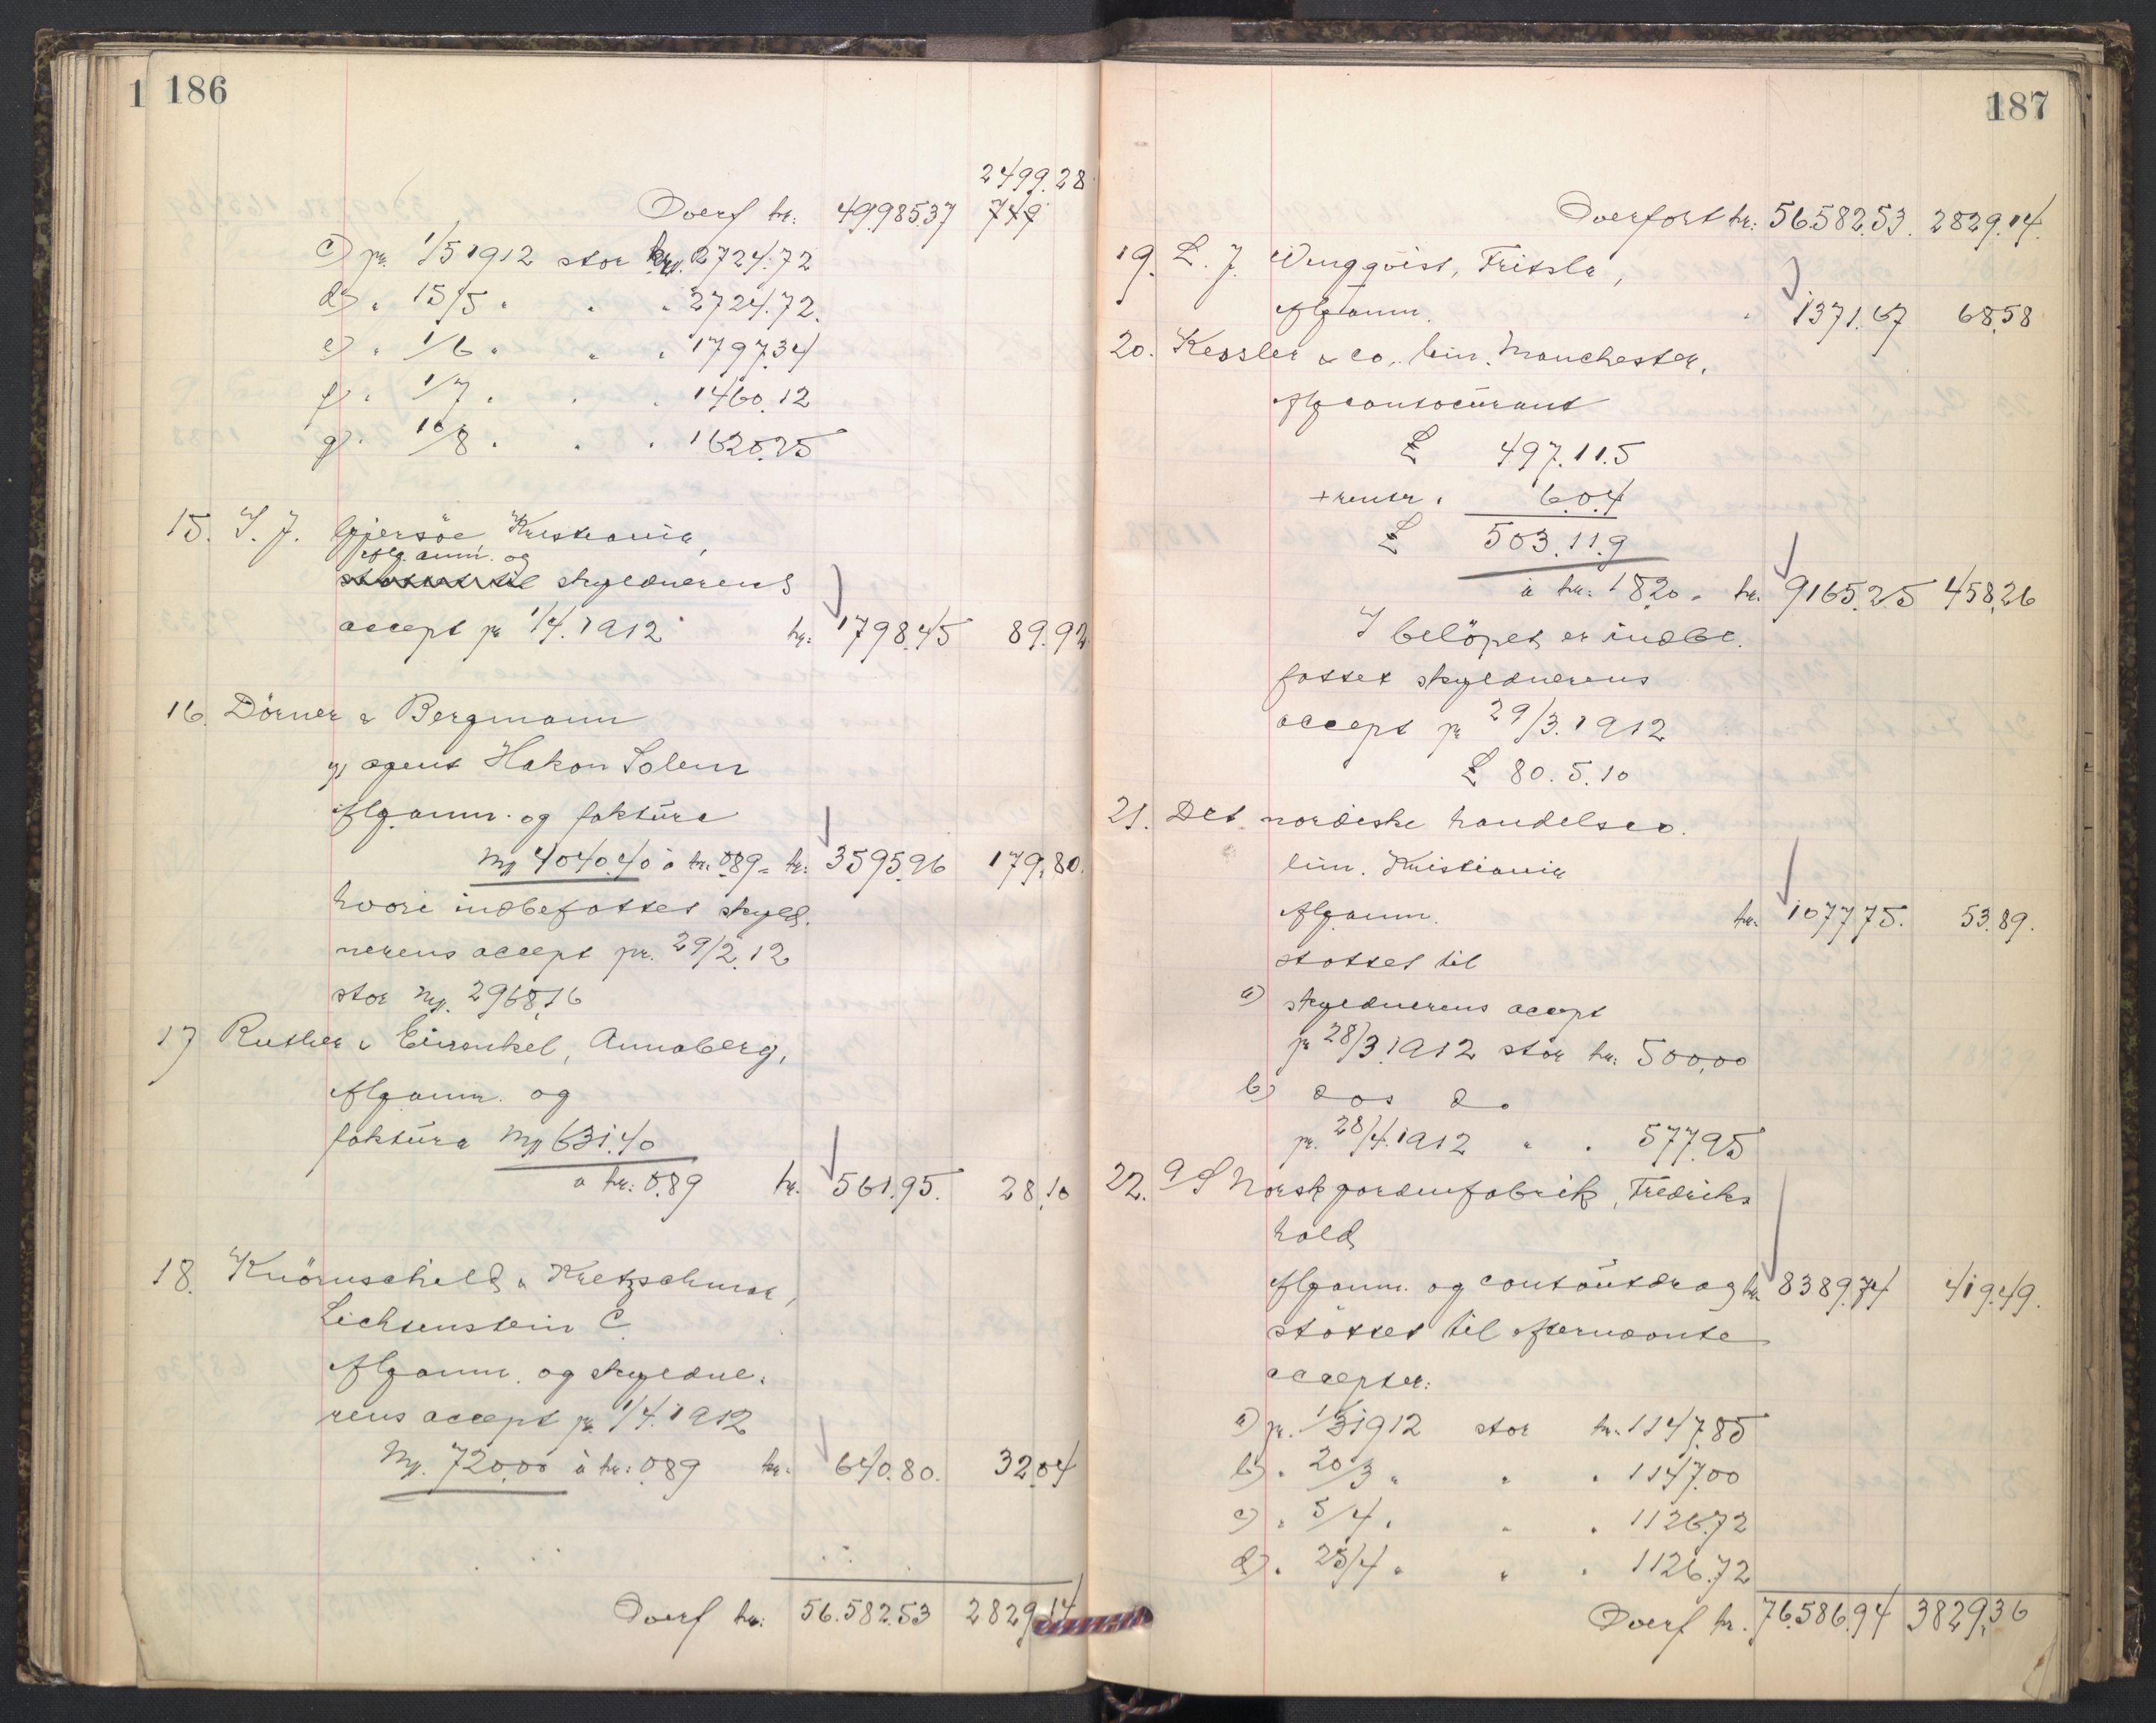 1 186
2499.28
Overf kr: 49.985.37 749
c) pr. 1/5 1912 stor kr. 2724.72
d) „ 15/5 „ „ „ 2724.72.
e) „ 1/6 „ „ „ 1797.34
f) „ 1/7 „ „ „ 1460.12
g) „ 10/8 „ „ „ 1625.25
15. I. J. Gjersöe Kristiania,
Afg. anm. og
støttet til skyldnerens
accept pr 1/4. 1912 kr: 1798.45 89.92
16. Dörner & Bergmann
v/ agent Hakon Solem
Afg anm. og faktura
Mk 4040.40 à kr. 0.89 = kr: 3595.96 179.80.
hvori indbefattet skyld-
nerens accept pr. 29/2.12
stor Mk. 2968.16
17 Ruther & Einenkel, Annaberg,
Afg anm. og
faktura Mk 631.40
à kr: 0.89 kr. 561.95. 28.10
18. Knörnschild & Kretzschmar,
Lichtenstein C.
Afg anm. og skyldne-
rens accept pr. 1/4. 1912
Mk. 720.00 à kr: 0.89 kr. 640.80. 32.04
Overf kr: 56.582.53 2829.14
187
Overført kr: 56.582.53. 2829.14.
19. L. J. Wingqvist, Fritsla,
Afg anm. 1371.67 68.58
20. Kessler & Co. lim. Manchester.
Afg contocurant
£ 497.11.5
+ renter „ 6.0.4
£ 503.11.9
à kr: 18.20 = kr. 9165.25 458.26
I beløpet er indbe-
fattet skyldnerens
accept pr 29/3. 1912
£ 80.5.10
21. Det nordiske handelsco.
lim. Kristiania
Afg anm. kr. 1077.75. 53.89.
støttet til
a) skyldnerens accept
pr 28/3 1912 stor kr: 500.00
b) dos do
pr. 28/4. 1912 „ „ 577.95
22. A/S Norsk gardinfabrik, Fredriks
hald
Afg anm. og contoutdrag kr 8389.74 419.49.
støttet til efternævnte
accepter:
a) pr. 1/3 1912 stor kr. 1147.85
b) „ 20/3 „ „ „ 1147.00
c) „ 5/4 „ „ „ 1126.72
d) „ 25/4 „ „ „ 1126.72
Overf kr. 76.586.94 3829.36